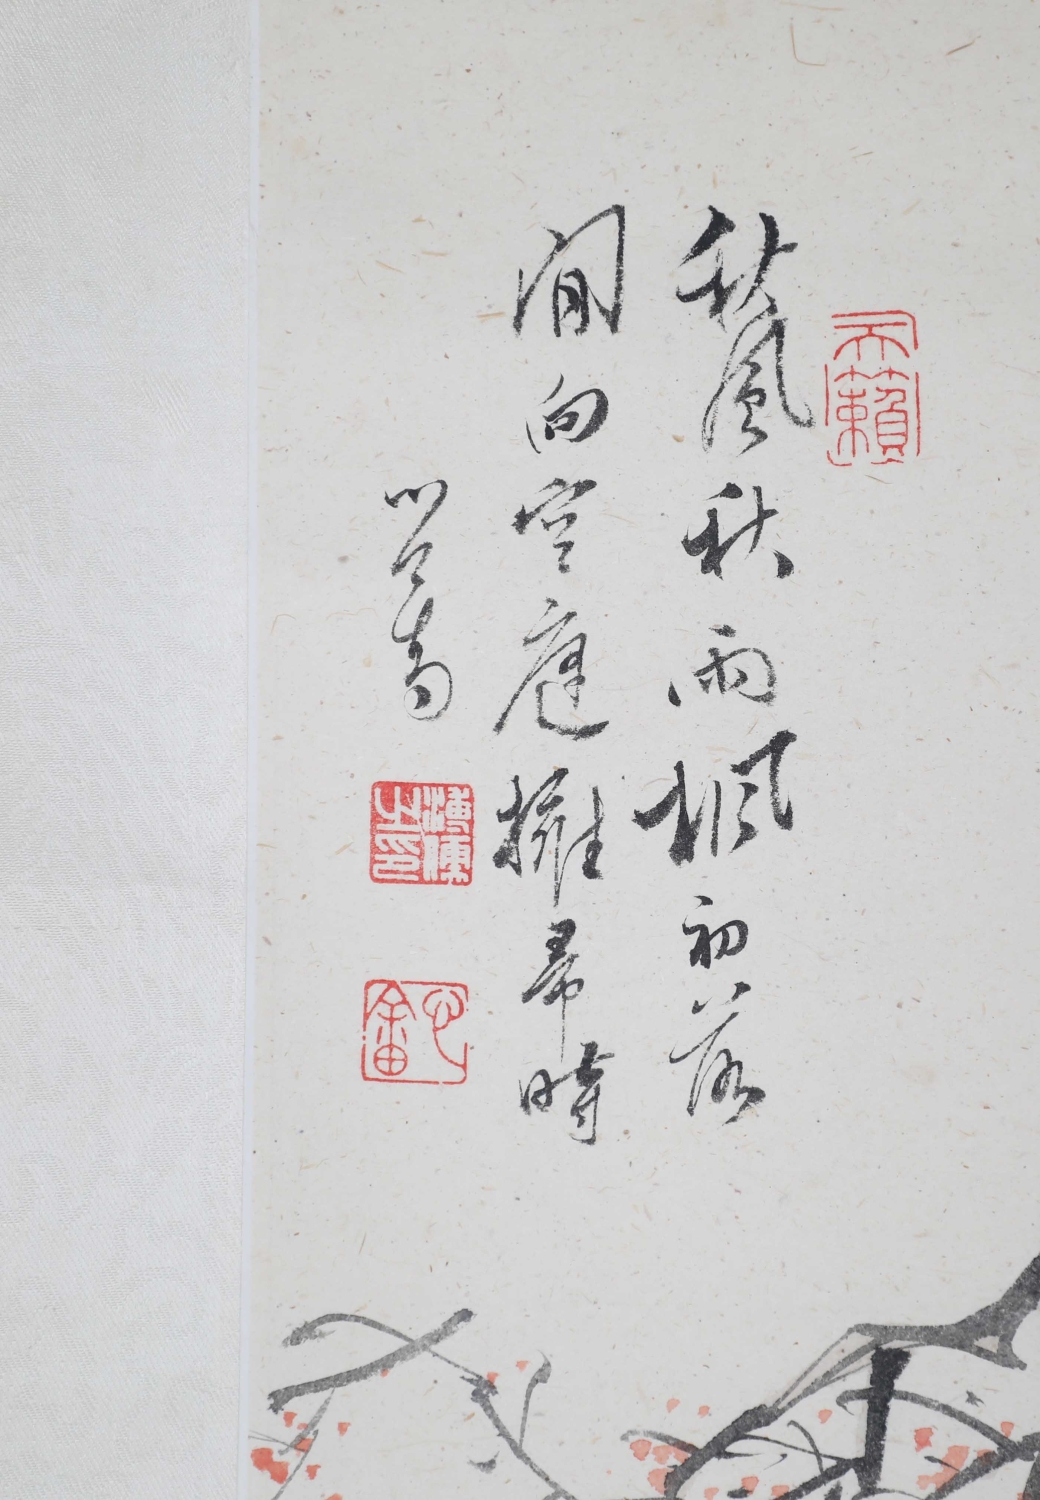 天籟
秋風秋雨楓初落
閒向空庭擁帚時
心畬
溥儒之印
心畬